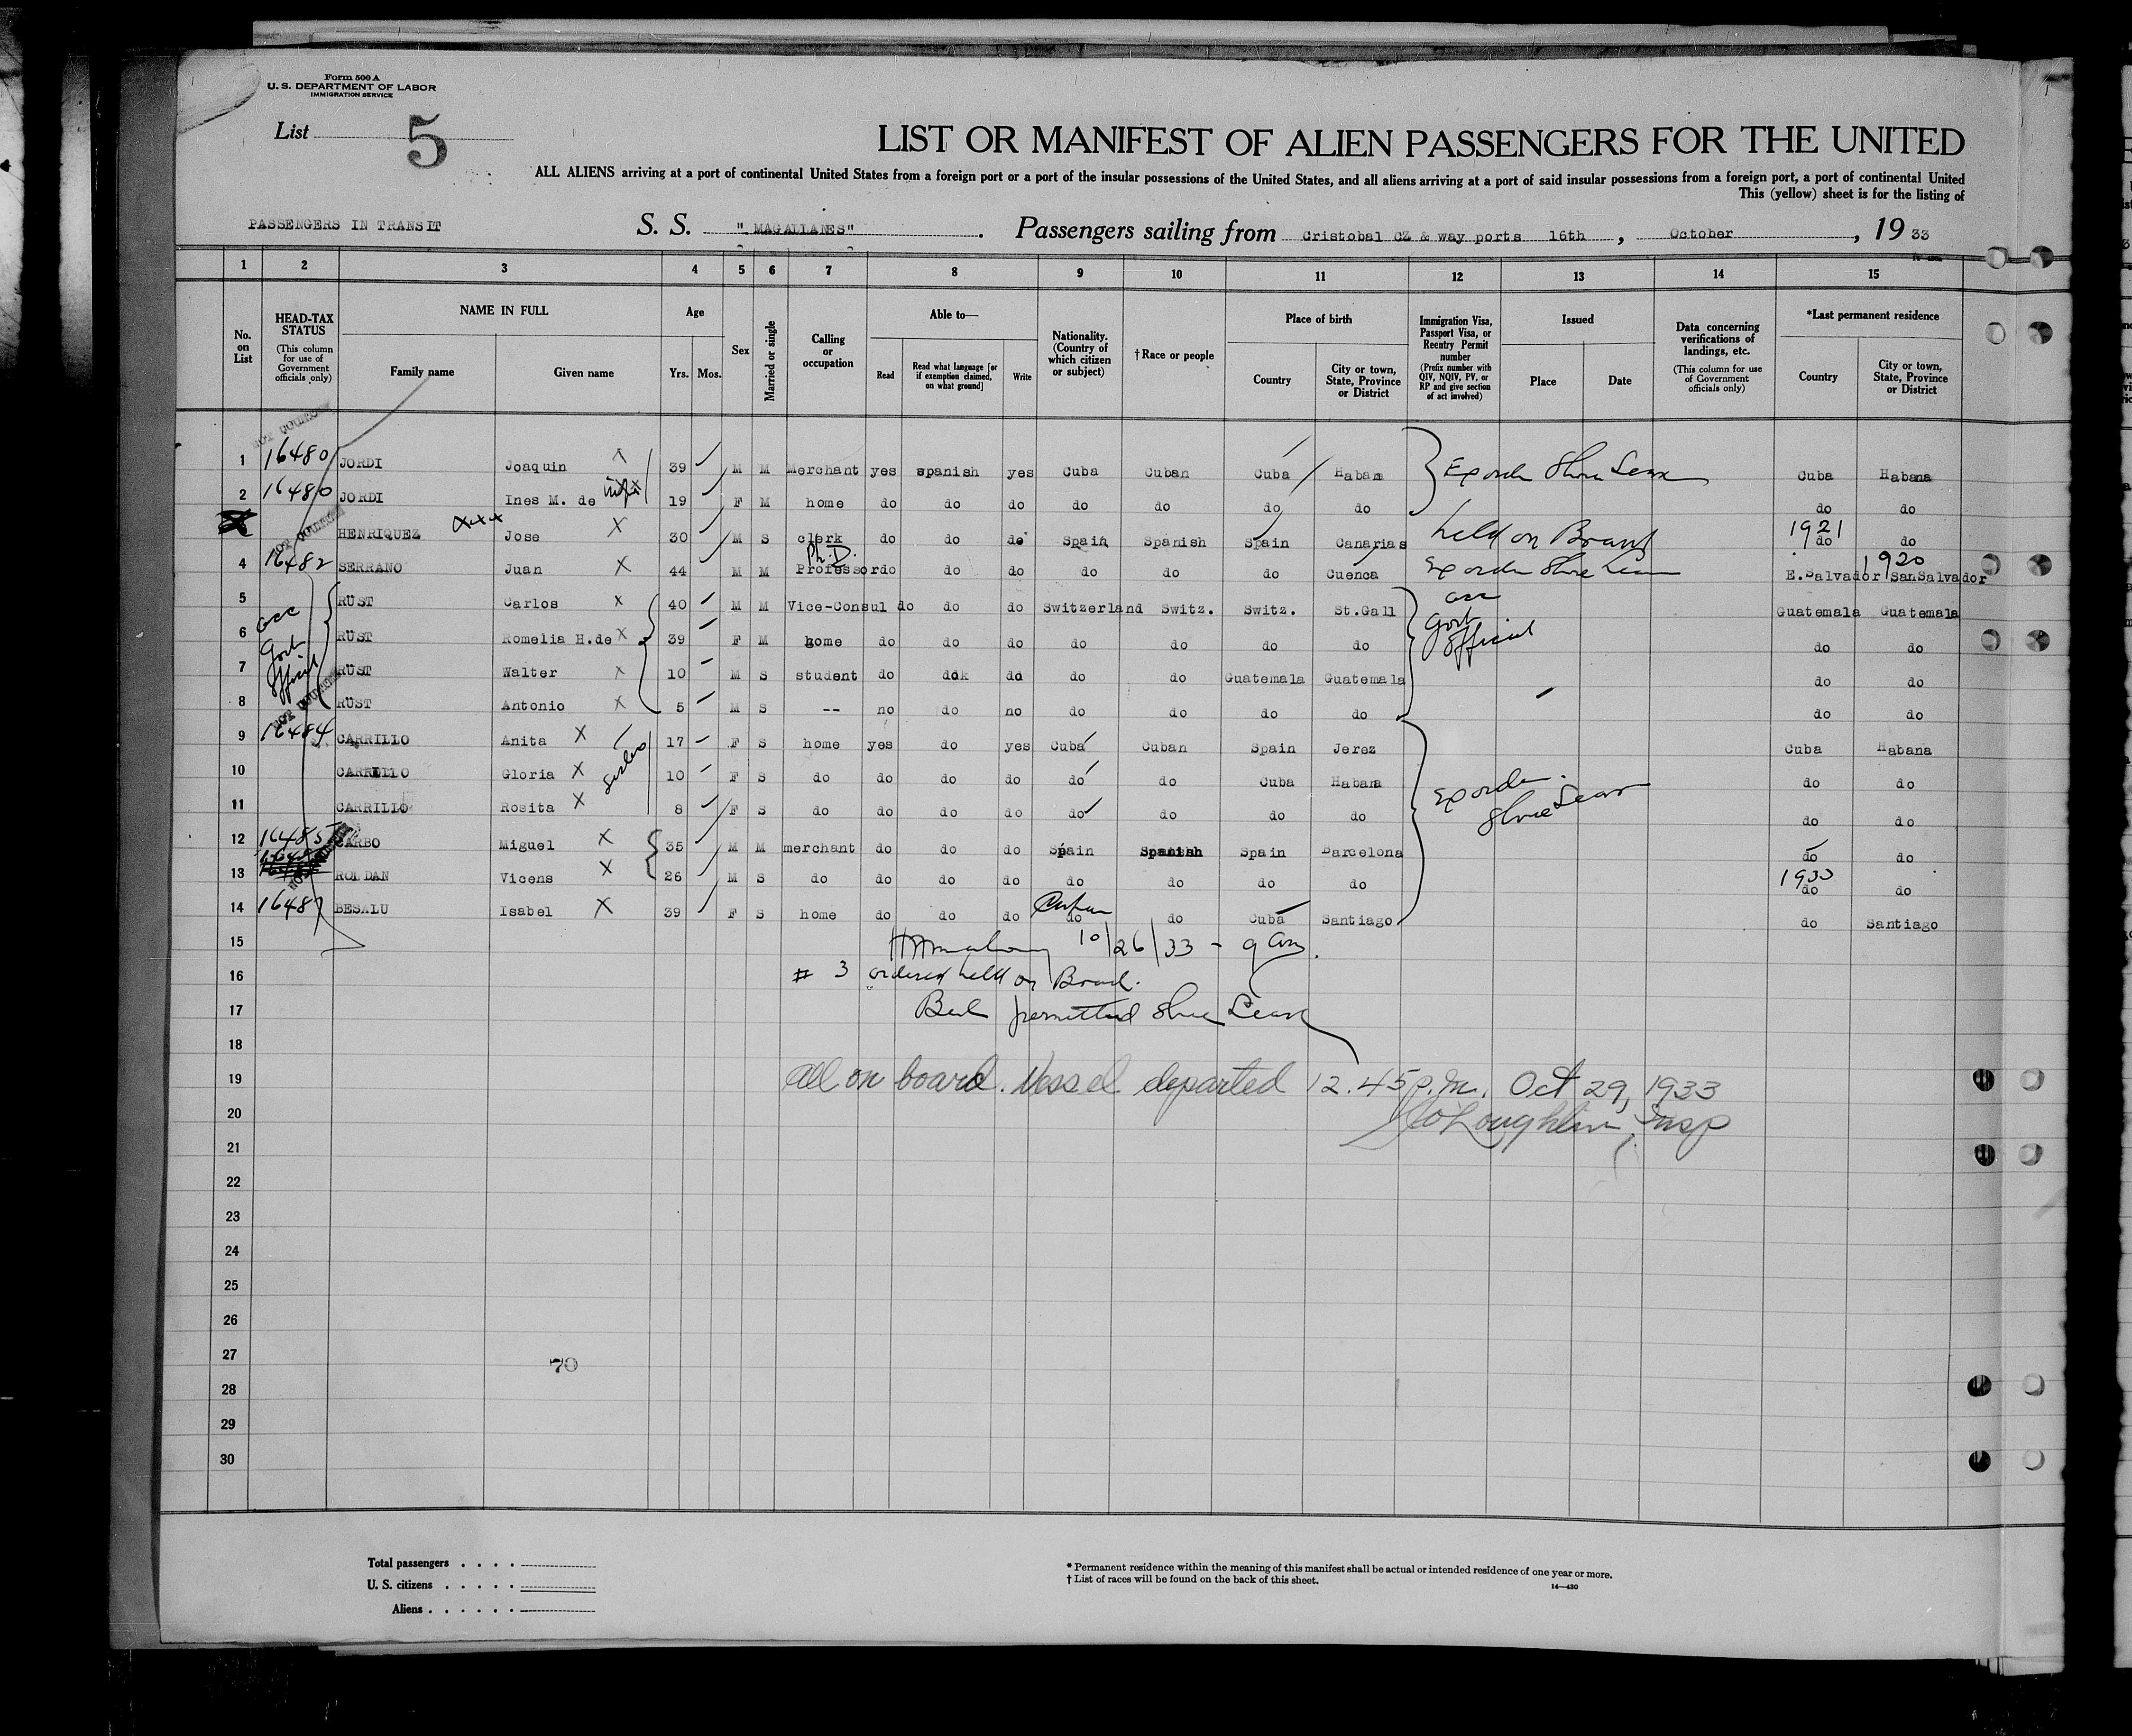 Form 500 A
U. S. DEPARTMENT OF LABOR
IMMIGRATION SERVICE
List 5
LIST OR MANIFEST OF ALIEN PASSENGERS FOR THE UNITED
ALL ALIENS arriving at a port of continental United States from a foreign port or a port of the insular possessions of the United States, and all aliens arriving at a port of said insular possessions from a foreign port, a port of continental United
This (yellow) sheet is for the listing of
PASSENGERS IN TRANSIT S. S. "MAGALLANES". Passengers sailing from Cristobal CZ & way ports 16th, October, 1933
1 2 3 4 5 6 7 8 9 10 11 12 13 14 15
No. on List
HEAD-TAX STATUS (This column for use of Government officials only)
NAME IN FULL
Family name
Given name
Age
Yrs. Mos.
Sex
Married or single
Calling or occupation
Able to—
Read
Read what language [or if exemption claimed, on what ground]
Write
Nationality. (Country of which citizen or subject)
†Race or people
Place of birth
Country
City or town, State, Province or District
Immigration Visa, Passport Visa, or Reentry Permit number (Prefix number with QIV, NQIV, PV, or RP and give section of act involved)
Issued
Place
Date
Data concerning verifications of landings, etc. (This column for use of Government officials only)
*Last permanent residence
Country
City or town, State, Province or District
NOT COUNTED
1 16480 JORDI Joaquin X 39 M M Merchant yes spanish yes Cuba Cuban Cuba Habana Cuba Habana
2 16480 JORDI Ines M. de 19 F M home do do do do do do do do do
HENRIQUEZ xxx Jose X 30 M S clerk do do do Spain Spanish Spain Canarias held on Board 1921 do do
4 16482 SERRANO Juan X 44 M M Ph.D. Professor do do do do do do Cuenca E.Salvador 1920 SanSalvador
5 RUST Carlos X 40 M M Vice-Consul do do do Switzerland Switz. Switz. St.Gall Guatemala Guatemala
6 RUST Romelia H.de X 39 F M home do do do do do do do Govt official do do
7 RUST Walter X 10 M S student do do do do do Guatemala Guatemala do do
8 RUST Antonio X 5 M S -- no do no do do do do do do
9 16484 CARRILLO Anita X 17 F S home yes do yes Cuba Cuban Spain Jerez Cuba Habana
10 CARRILLO Gloria X sisters 10 F S do do do do do do Cuba Habana do do
11 CARRILLO Rosita X 8 F S do do do do do do do do do do
12 16485 CARBO Miguel X 35 M M merchant do do do Spain Spanish Spain Barcelona do do
13 ROLDAN Vicens X 26 M S do do do do do do do do 1933 do do
14 16487 BESALU Isabel X 39 F S home do do do Cuban do do Cuba Santiago do Santiago
15 10/26/33 - 9 am.
16 # 3 ordered held on Board.
17 permitted Shore Leave
18
19 All on board. Vessel departed 12.45 p.m. Oct 29, 1933
20 O'Loughlin, Insp
21
22
23
24
25
26
27 70
28
29
30
Total passengers
U. S. citizens
Aliens
* Permanent residence within the meaning of this manifest shall be actual or intended residence of one year or more.
† List of races will be found on the back of this sheet.
14—430